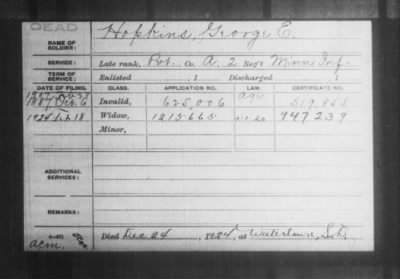 DEAD
NAME OF SOLDIER: Hopkins, George E.
SERVICE: Late rank, Pvt. Co. A, 2 Reg't Minn Inf.
TERM OF SERVICE: Enlisted , 1 Discharged , 1
DATE OF FILING. CLASS. APPLICATION NO. LAW. CERTIFICATE NO.
1887 Dec. 6 Invalid, 625,006
1924 Feb 18 Widow, 1213.665 947239
Minor,
ADDITIONAL SERVICES:
REMARKS:
Died Dec 24, 1924, at
acm.